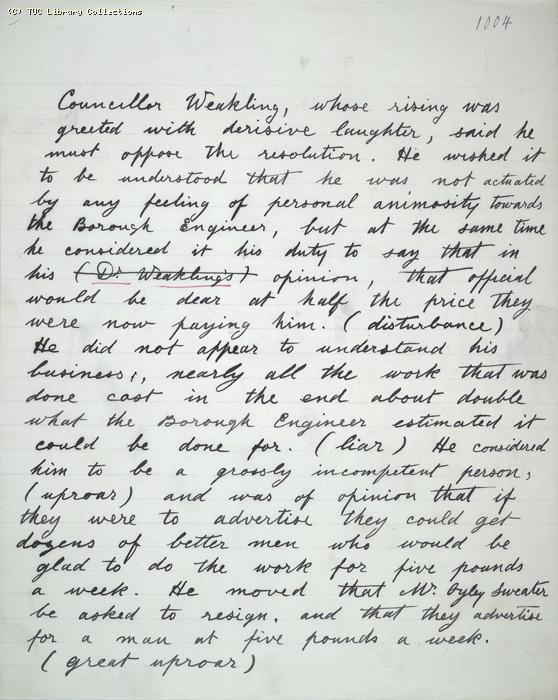 (C) TUC Library Collections
1004
Councillor Weakling, whose rising was
greeted with derisive laughter, said he
must oppose the resolution. He wished it
to be understood that he was not actuated
by any feeling of personal animosity towards
the Borough Engineer, but at the same time
he considered it his duty to say that in
his (Dr Weakling's) opinion, that official
would be dear at half the price they
were now paying him. (disturbance)
He did not appear to understand his
business;, nearly all the work that was
done cost in the end about double
what the Borough Engineer estimated it
could be done for. (liar) He considered
him to be a grossly incompetent person;
(uproar) and was of opinion that if
they were to advertise they could get
dozens of better men who would be
glad to do the work for five pounds
a week. He moved that Mr. Oyley Sweater
be asked to resign, and that they advertise
for a man at five pounds a week.
(great uproar)